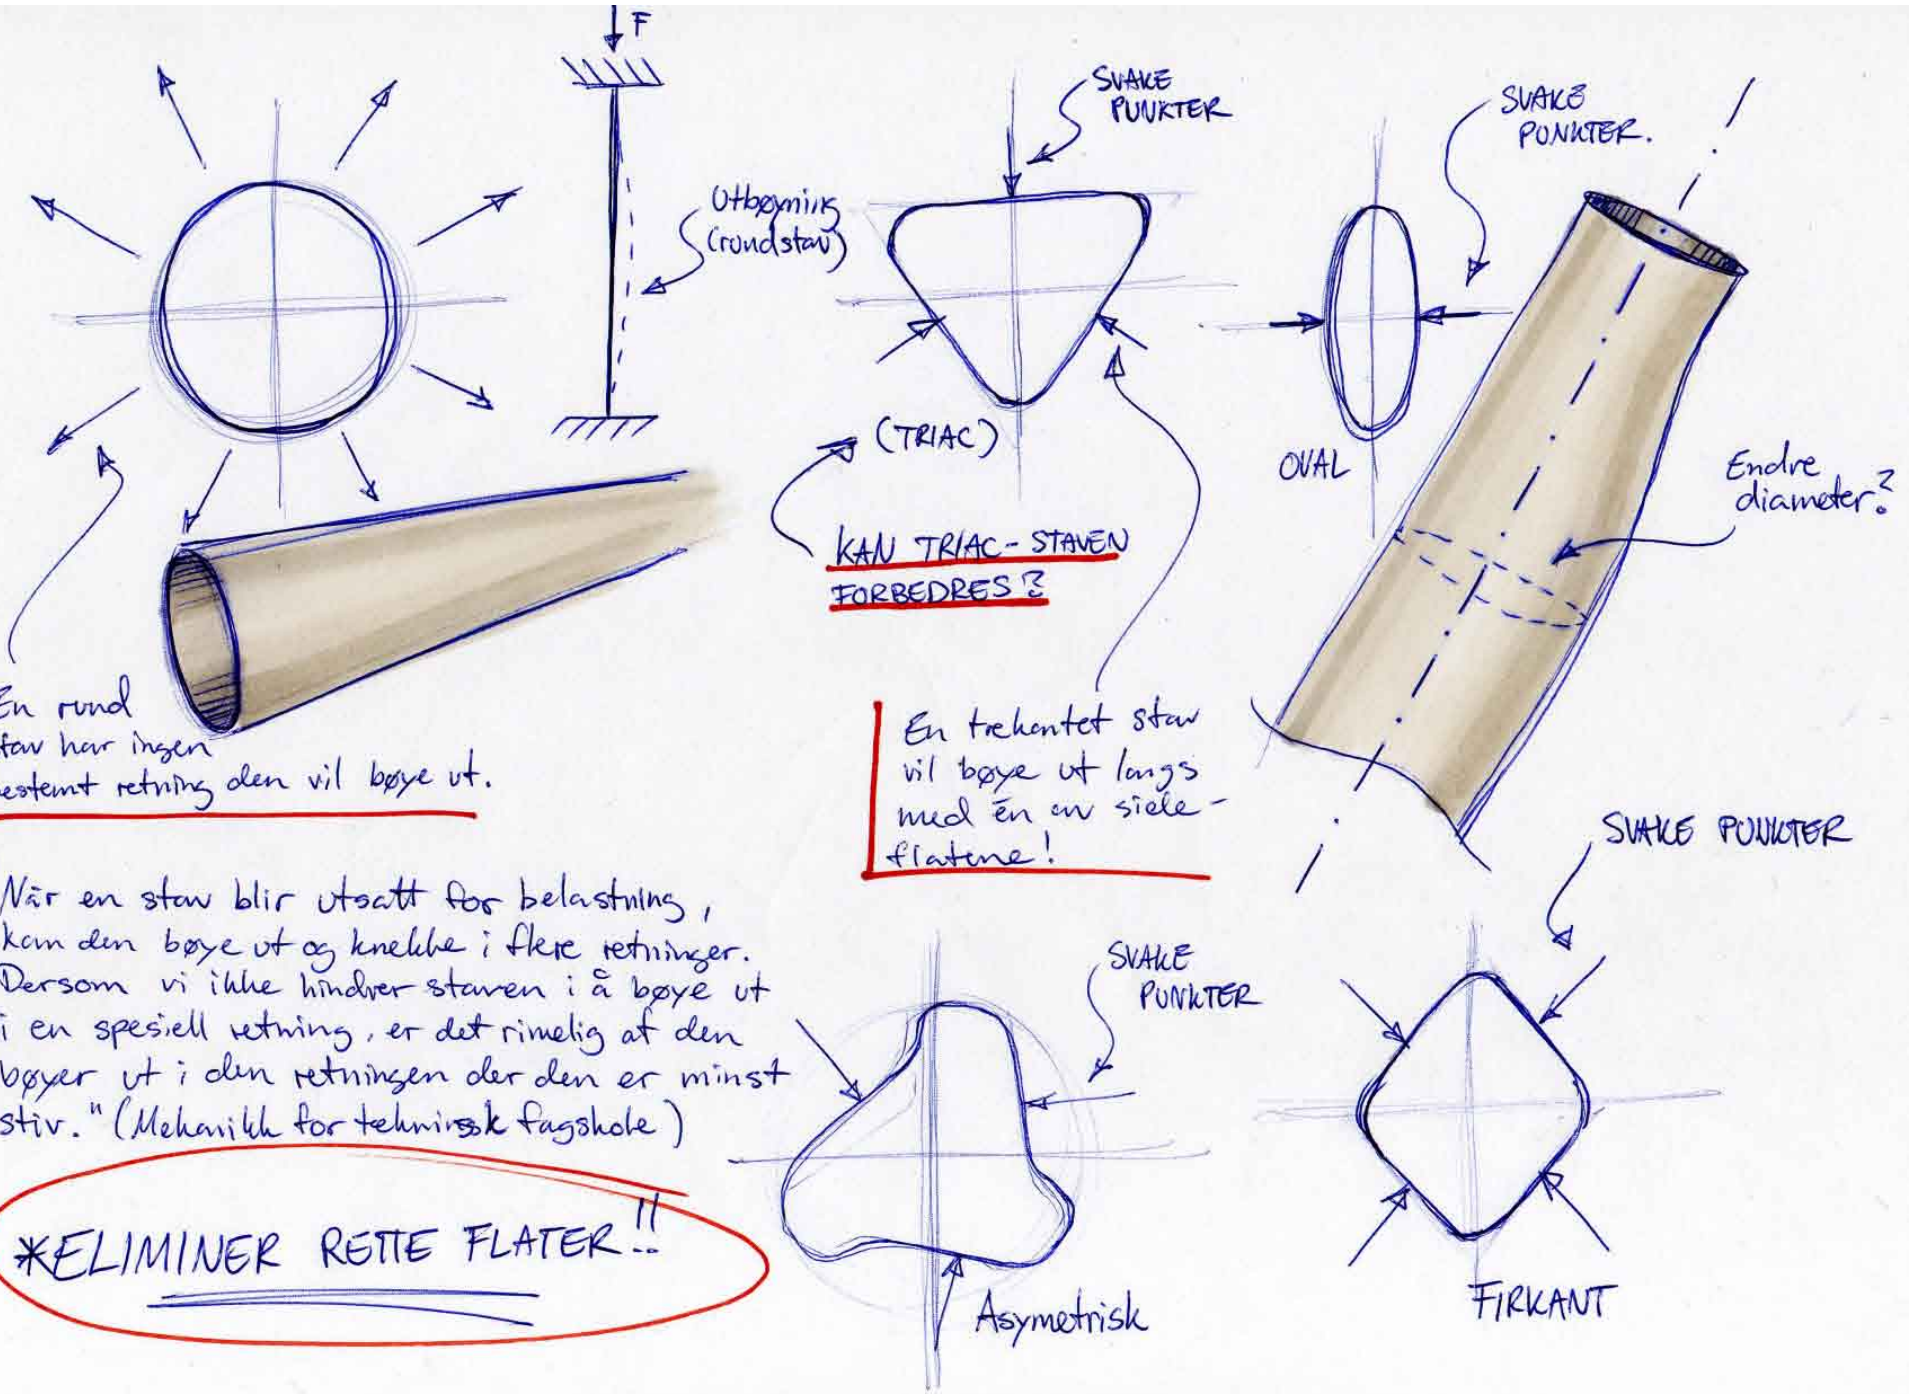 F
Utbøyning
(rundstav)
SVAKE
PUNKTER
SVAKE
PUNKTER.
(TRIAC)
OVAL
Endre
diameter?
KAN TRIAC-STAVEN
FORBEDRES?
En rund
tav har ingen
estemt retning den vil bøye ut.
En trekantet stav
vil bøye ut langs
med én av side-
flatene!
SVAKE PUNKTER
Når en stav blir utsatt for belastning,
kan den bøye ut og knekke i flere retninger.
Dersom vi ikke hindrer staven i å bøye ut
i en spesiell retning, er det rimelig at den
bøyer ut i den retningen der den er minst
stiv." (Mekanikk for teknisk fagskole)
SVAKE
PUNKTER
*ELIMINER RETTE FLATER!!
Asymetrisk
FIRKANT